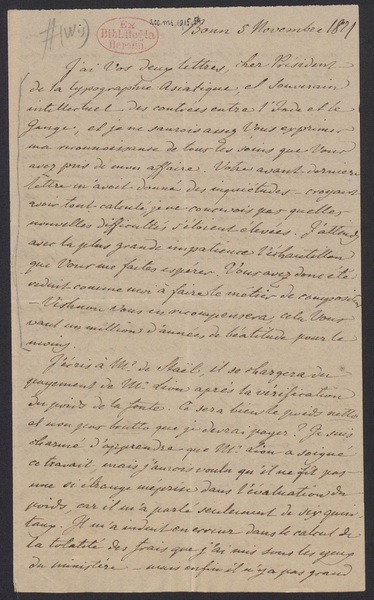 #(w:)
Ex
Biblioteca
Regia
Berolin.
acc. ms. 1915.
Bonn 5 Novembre 1821
J'ai Vos deux lettres, cher Président
de la typographie Asiatique, et souverain
intellectuel des contrées entre l'Inde et le
Gange, et je ne saurois assez Vous exprimer
ma reconnoissance de tous les soins que Vous
avez pris de mon affaire. Votre avant dernière
lettre m'avoit donné des inquiétudes, croyant
avoir tout calculé je ne concevois pas quelles
nouvelles difficultés s'étoient élevées. J'attends
avec la plus grande impatience l'échantillon
que Vous me faites espérer. Vous avez donc été
réduit comme moi à faire le métier de compositeur
– Vishnou Vous en récompensera, cela Vous
vaut un million d'années de béatitude pour le
moins.
J'écris à Mr. de Staël, il se chargera du
payement de Mr. Lion après la vérification
du poids de la fonte. Ce sera bien le poids netto
et non pas brutto que je devrai payer? Je suis
charmé d'apprendre que Mr. Lion a soigné
ce travail, mais j'aurois voulu qu'il ne fît pas
une si étrange méprise dans l'évaluation du
poids, car il m'a parlé seulement de six quin-
taux. Il m'a induit en erreur dans le calcul de
la totalité des frais que j'ai mis sous les yeux
du ministère – mais enfin il n'y a pas grand